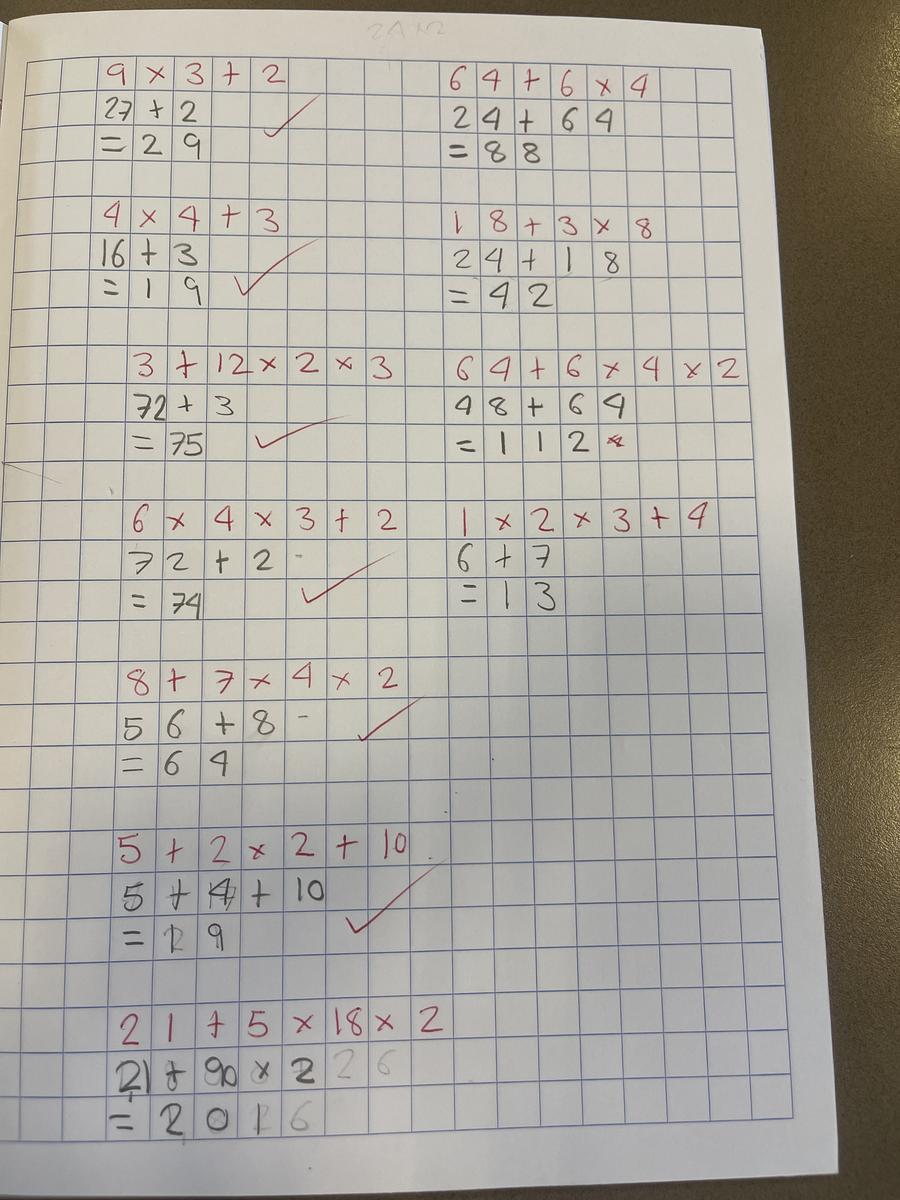 9 × 3 + 2
27 + 2
= 2 9
4 × 4 + 3
16 + 3
= 1 9
3 + 12 × 2 × 3
72 + 3
= 75
6 × 4 × 3 + 2
72 + 2
= 74
8 + 7 × 4 × 2
5 6 + 8
= 6 4
5 + 2 × 2 + 10
5 + 4 + 10
= 1 9
2 1 + 5 × 18 × 2
21 + 90 × 2 2 6
= 2 0 1 6
6 4 + 6 × 4
2 4 + 6 4
= 8 8
1 8 + 3 × 8
2 4 + 1 8
= 4 2
6 4 + 6 × 4 × 2
4 8 + 6 4
= 1 1 2
1 × 2 × 3 + 4
6 + 7
= 1 3